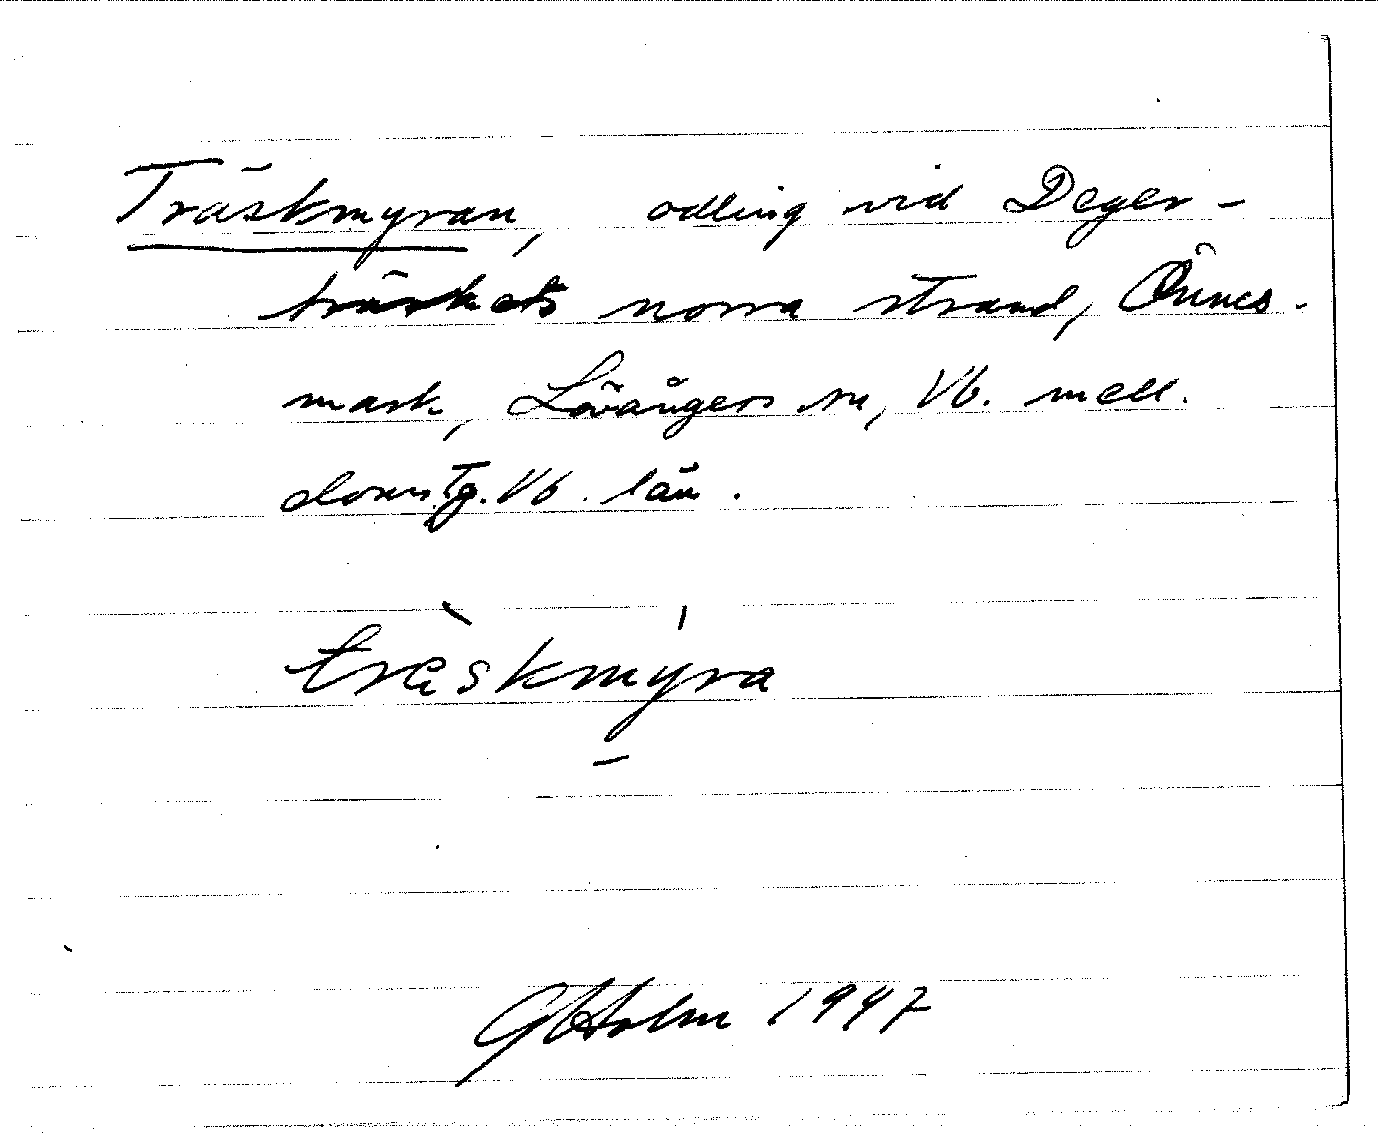 Träskmyran, odling vid Deger-
träskets norra strand, Önnes-
mark, Lövångers sn, Vb. mell.
doms.Tg. Vb. län.
träskmyra
GHolm 1947